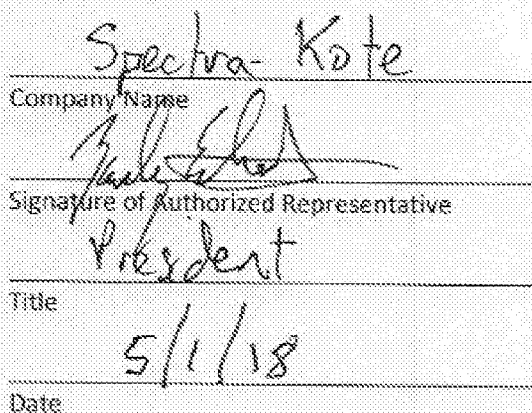 Spectra-Kote
Company Name
Signature of Authorized Representative
President
Title
5/1/18
Date